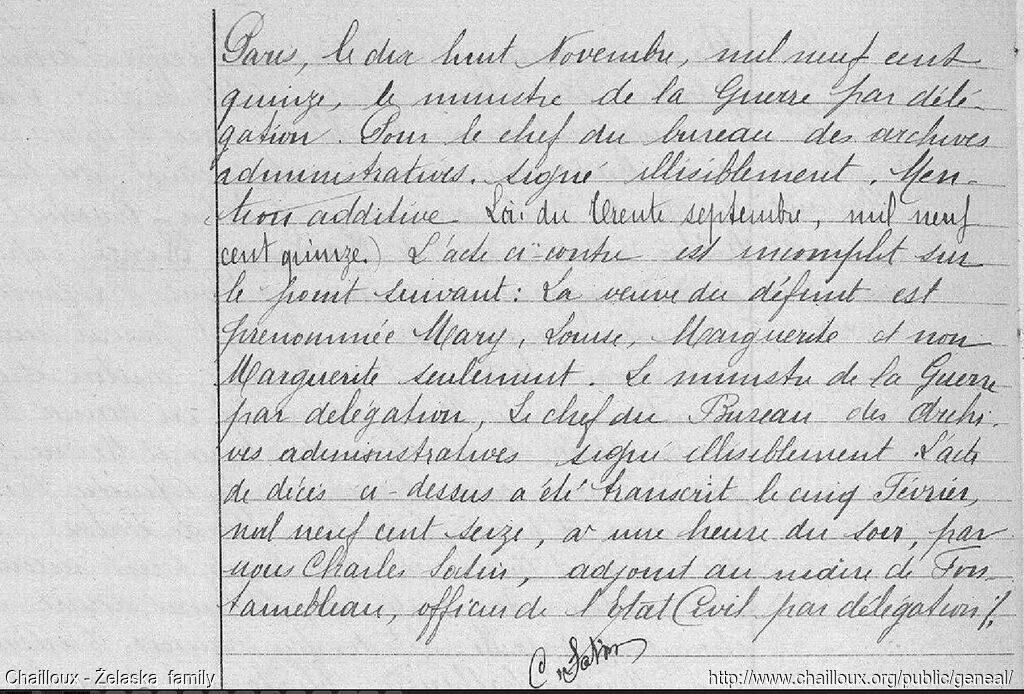 Paris, le dix huit Novembre, mil neuf cent
quinze, le ministre de la Guerre par délé-
gation. Pour le chef du bureau des archives
administratives. signé illisiblement. Men-
tion additive. Loi du Trente septembre, mil neuf
cent quinze.) L'acte ci-contre est incomplet sur
le point suivant: La veuve du défunt est
prénommée Mary, Louise, Marguerite et non
Marguerite seulement. Le ministre de la Guerre
par délégation, Le chef du Bureau des Archi-
ves administratives signé illisiblement L'acte
de décès ci-dessus a été transcrit le cinq Février,
mil neuf cent seize, à une heure du soir, par
nous Charles Salin, adjoint au maire de Fon-
tainebleau, officier de l'Etat Civil par délégation %.
Ch Salin
Chailloux - Żelaska family
http://www.chailloux.org/public/geneal/